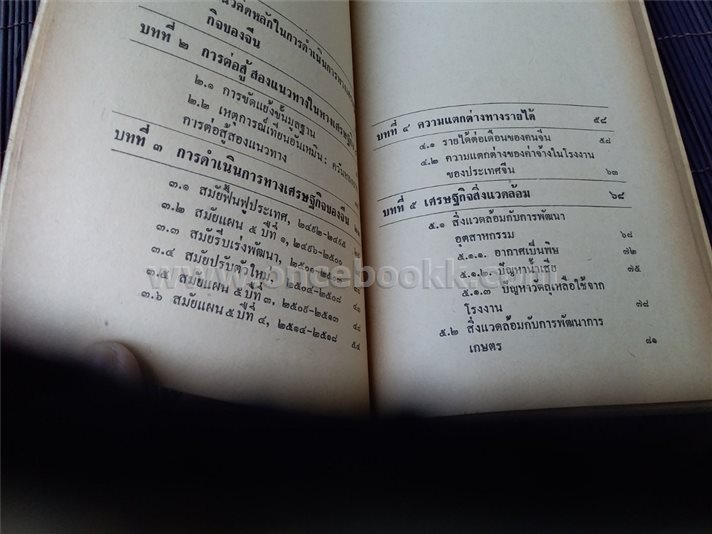 แนวคิดหลักในการดำเนินการทาง
กิจของจีน
บทที่ ๒ การต่อสู้ สองแนวทางในทางเศรษฐกิจ
๒.๑ การขัดแย้งขั้นมูลฐาน
๒.๒ เหตุการณ์เทียนอันเหมิน:
การต่อสู้สองแนวทาง
บทที่ ๓ การดำเนินการทางเศรษฐกิจของจีน
๓.๑ สมัยฟื้นฟูประเทศ, ๒๔๙๒-๒๔๙๕
๓.๒ สมัยแผน ๕ ปีที่ ๑, ๒๔๙๖-๒๕๐๐
๓.๓ สมัยรีบเร่งพัฒนา, ๒๕๐๑-
๓.๔ สมัยปรับตัวใหม่, ๒๕๐๔-๒๕๐๘ ๔๑
๓.๕ สมัยแผน ๕ ปีที่ ๓, ๒๕๐๙-๒๕๑๓ ๔๔
๓.๖ สมัยแผน ๕ ปีที่ ๔, ๒๕๑๔-๒๕๑๘ ๕๔
บทที่ ๔ ความแตกต่างทางรายได้ ๕๘
๔.๑ รายได้ต่อเดือนของคนจีน ๕๘
๔.๒ ความแตกต่างของค่าจ้างในโรงงาน
ของประเทศจีน ๖๓
บทที่ ๕ เศรษฐกิจสิ่งแวดล้อม ๖๘
๕.๑ สิ่งแวดล้อมกับการพัฒนา
อุตสาหกรรม ๖๘
๕.๑.๑. อากาศเป็นพิษ ๗๒
๕.๑.๒. ปัญหาน้ำเสีย ๗๕
๕.๑.๓ ปัญหาวัตถุเหลือใช้จาก
โรงงาน ๗๘
๕.๒ สิ่งแวดล้อมกับการพัฒนาการ
เกษตร ๘๑
www.oncebookk.com